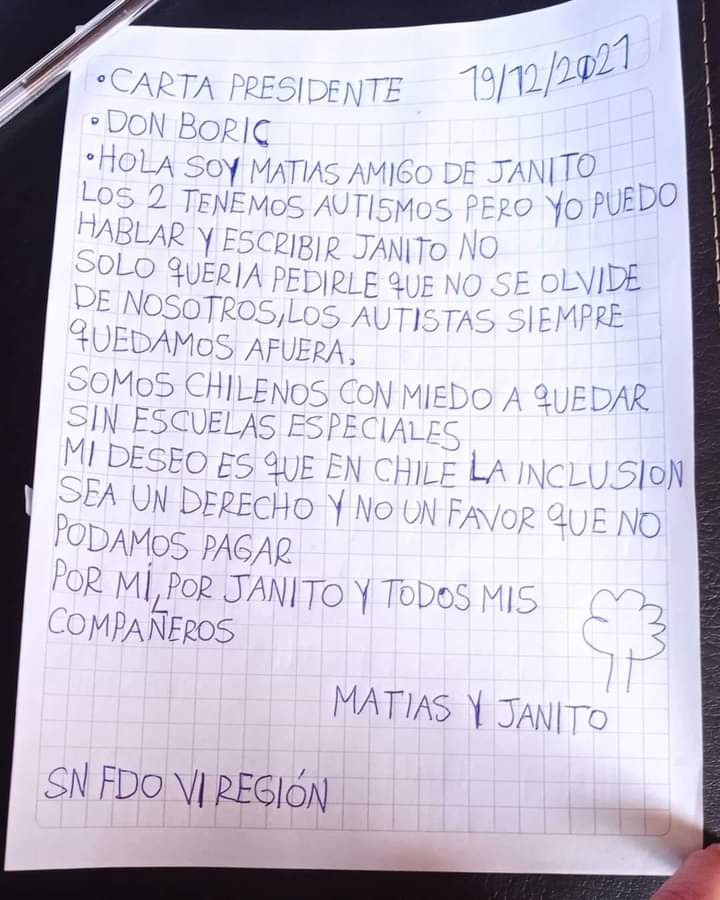 •CARTA PRESIDENTE 19/12/2021
•DON BORIC
•HOLA SOY MATIAS AMIGO DE JANITO
LOS 2 TENEMOS AUTISMOS PERO YO PUEDO
HABLAR Y ESCRIBIR JANITO NO
SOLO QUERIA PEDIRLE QUE NO SE OLVIDE
DE NOSOTROS, LOS AUTISTAS SIEMPRE
QUEDAMOS AFUERA.
SOMOS CHILENOS CON MIEDO A QUEDAR
SIN ESCUELAS ESPECIALES
MI DESEO ES QUE EN CHILE LA INCLUSION
SEA UN DERECHO Y NO UN FAVOR QUE NO
PODAMOS PAGAR
POR MÍ, POR JANITO Y TODOS MIS
COMPAÑEROS
MATIAS Y JANITO
SN FDO VI REGIÓN